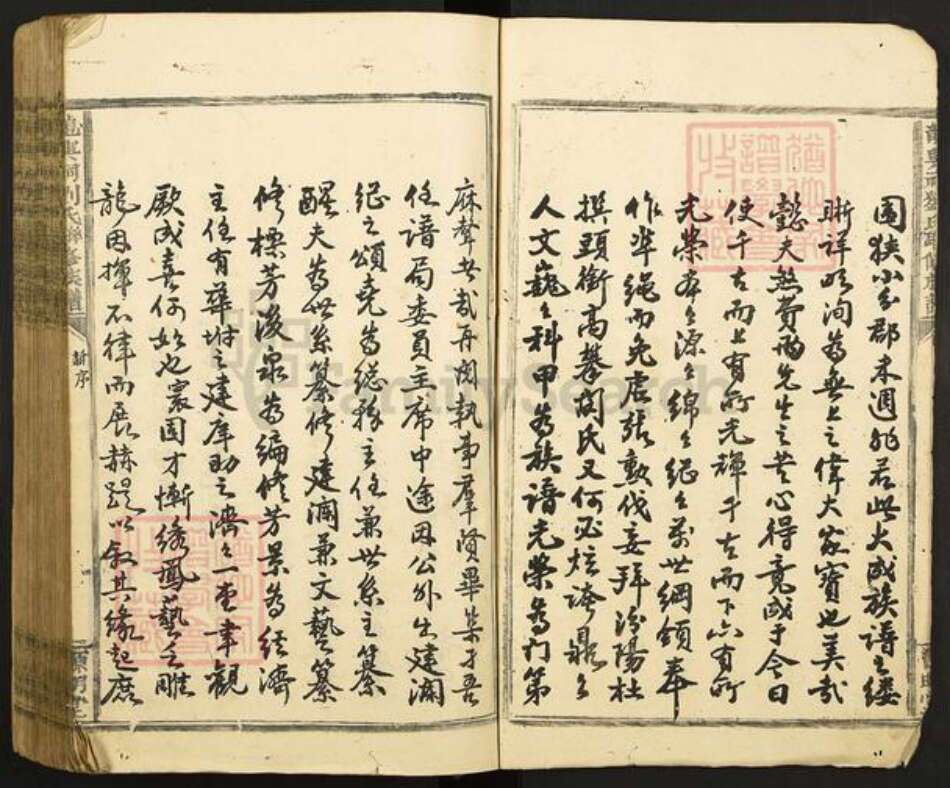 圍狹小各郡未週非若此大成族譜之縷
晰詳明洵為無上之偉大家寶也美哉
懿夫煞費兩先生之苦心得竟成于今日
使千古而上有所光輝千古而下亦有所
光榮本之源之綿之繩之萬世綱領奉
作準繩而免虛張勳伐妄拜汾陽杜
撰頭銜高攀閥氏又何必炫誇鼎之
人文巍之科甲為族譜光榮為門第
麻聲哉再閱執事群賢畢集予吾
任譜局委員主席中途因公外出建瀾
繩之頌堯為總務主任兼世系主纂
醒夫為世系纂修建瀾兼文藝纂
修標芳浚泉為編修芳景為經濟
主任有華財之建庠助之濟之一堂聿觀
厥成喜何如也寰因才慚繡鳳藝乏雕
龍因揮不律而展赫蹏以敘其緣起庶
新序
FamilySearch